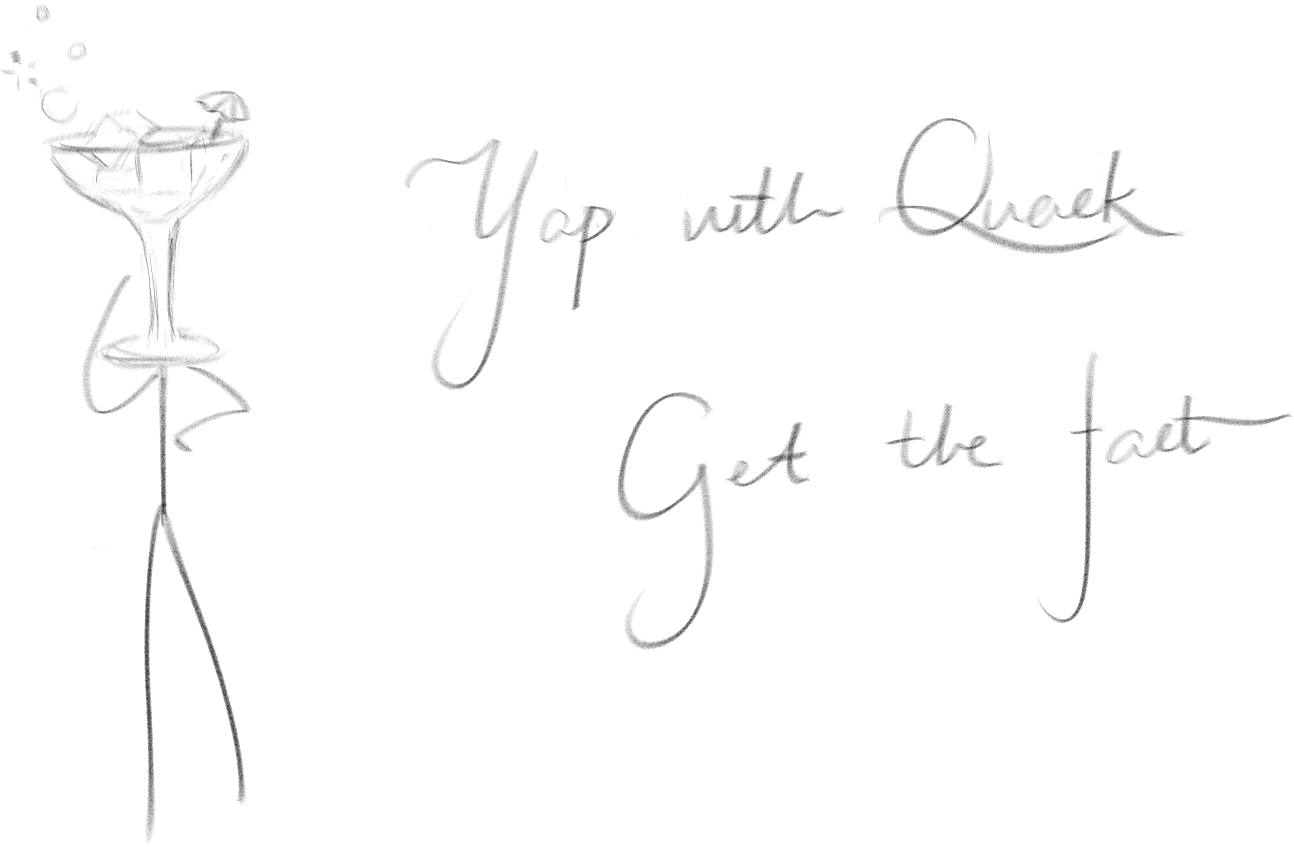 Yap with Quack
Get the fact